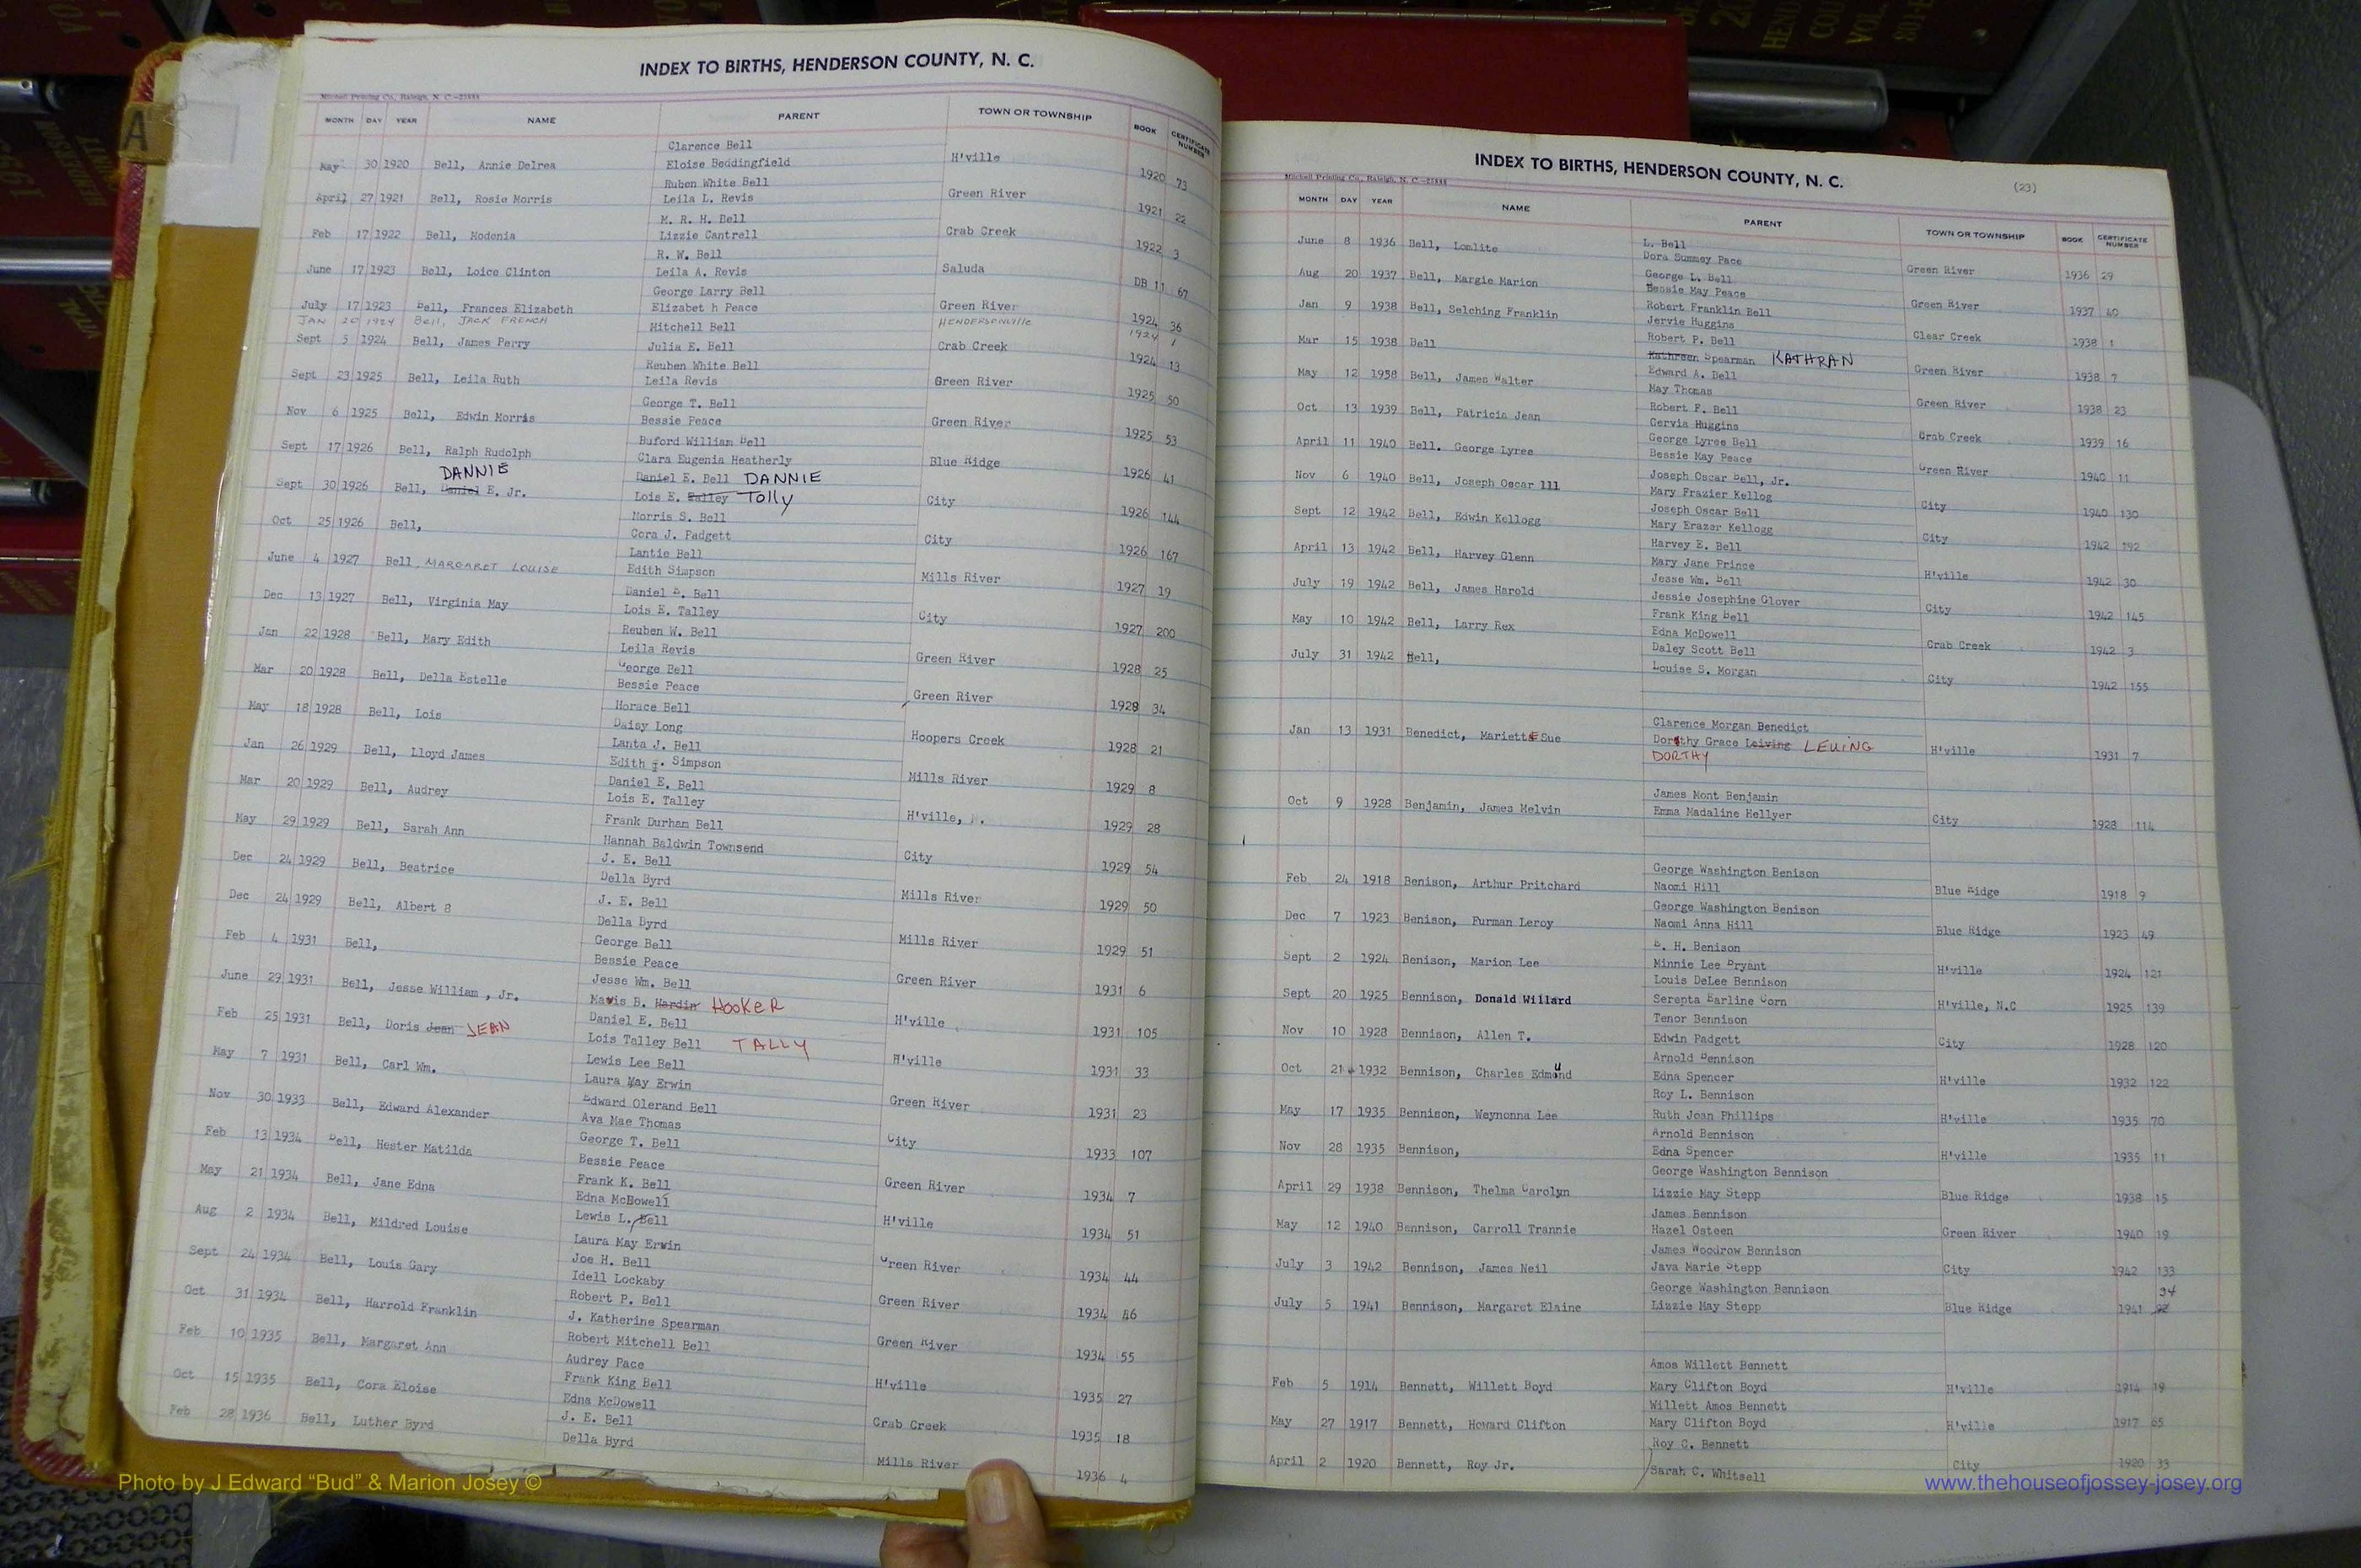 INDEX TO BIRTHS, HENDERSON COUNTY, N. C.
Mitchell Printing Co., Raleigh, N. C.—23888
MONTH DAY YEAR NAME PARENT TOWN OR TOWNSHIP BOOK CERTIFICATE NUMBER
Clarence Bell
May 30 1920 Bell, Annie Delrea Eloise Beddingfield H'ville 1920 73
Ruben White Bell
April 27 1921 Bell, Rosie Morris Leila L. Revis Green River 1921 22
M. R. H. Bell
Feb 17 1922 Bell, Modenia Lizzie Cantrell Crab Creek 1922 3
R. W. Bell
June 17 1923 Bell, Loice Clinton Leila A. Revis Saluda DB 11 67
George Larry Bell
July 17 1923 Bell, Frances Elizabeth Elizabet h Peace Green River 1924 36
JAN 20 1924 Bell, JACK FRENCH HENDERSONVIlle 1924 1
Mitchell Bell
Sept 5 1924 Bell, James Perry Julia E. Bell Crab Creek 1924 13
Reuben White Bell
Sept 23 1925 Bell, Leila Ruth Leila Revis Green River 1925 50
George T. Bell
Nov 6 1925 Bell, Edwin Morris Bessie Peace Green River 1925 53
Buford William Bell
Sept 17 1926 Bell, Ralph Rudolph Clara Eugenia Heatherly Blue Ridge 1926 41
DANNIE Daniel E. Bell DANNIE
Sept 30 1926 Bell, Daniel E. Jr. Lois E. Talley Tolly City 1926 144
Morris S. Bell
Oct 25 1926 Bell, Cora J. Padgett City 1926 167
Lantie Bell
June 4 1927 Bell MARGARET LOUISE Edith Simpson Mills River 1927 19
Daniel E. Bell
Dec 13 1927 Bell, Virginia May Lois E. Talley City 1927 200
Reuben W. Bell
Jan 22 1928 Bell, Mary Edith Leila Revis Green River 1928 25
George Bell
Mar 20 1928 Bell, Della Estelle Bessie Peace Green River 1928 34
Horace Bell
May 18 1928 Bell, Lois Daisy Long Hoopers Creek 1928 21
Lanta J. Bell
Jan 26 1929 Bell, Lloyd James Edith . Simpson Mills River 1929 8
Daniel E. Bell
Mar 20 1929 Bell, Audrey Lois E. Talley H'ville, 1929 28
Frank Durham Bell
May 29 1929 Bell, Sarah Ann Hannah Baldwin Townsend City 1929 54
J. E. Bell
Dec 24 1929 Bell, Beatrice Della Byrd Mills River 1929 50
J. E. Bell
Dec 24 1929 Bell, Albert Della Byrd Mills River 1929 51
George Bell
Feb 4 1931 Bell, Bessie Peace Green River 1931 6
Jesse Wm. Bell
June 29 1931 Bell, Jesse William , Jr. Mavis B. Hardin HOOKER H'ville 1931 105
Daniel E. Bell
Feb 25 1931 Bell, Doris Jean JEAN Lois Talley Bell TALLY H'ville 1931 33
Lewis Lee Bell
May 7 1931 Bell, Carl Wm. Laura May Erwin Green River 1931 23
Edward Olerand Bell
Nov 30 1933 Bell, Edward Alexander Ava Mae Thomas City 1933 107
George T. Bell
Feb 13 1934 Bell, Hester Matilda Bessie Peace Green River 1934 7
Frank K. Bell
May 21 1934 Bell, Jane Edna Edna McDowell H'ville 1934 51
Lewis L. Bell
Aug 2 1934 Bell, Mildred Louise Laura May Erwin Green River 1934 44
Joe H. Bell
Sept 24 1934 Bell, Louis Gary Idell Lockaby Green River 1934 46
Robert P. Bell
Oct 31 1934 Bell, Harrold Franklin J. Katherine Spearman Green River 1934 55
Robert Mitchell Bell
Feb 10 1935 Bell, Margaret Ann Audrey Pace H'ville 1935 27
Frank King Bell
Oct 15 1935 Bell, Cora Eloise Edna McDowell Crab Creek 1935 18
J. E. Bell
Feb 28 1936 Bell, Luther Byrd Della Byrd Mills River 1936 4
INDEX TO BIRTHS, HENDERSON COUNTY, N. C. (23)
Mitchell Printing Co., Raleigh, N. C.—23888
MONTH DAY YEAR NAME PARENT TOWN OR TOWNSHIP BOOK CERTIFICATE NUMBER
L. Bell
June 8 1936 Bell, Lomlite Dora Summey Pace Green River 1936 29
George L. Bell
Aug 20 1937 Bell, Margie Marion Bessie May Peace Green River 1937 40
Robert Franklin Bell
Jan 9 1938 Bell, Selching Franklin Jervie Huggins Clear Creek 1938 1
Robert P. Bell
Mar 15 1938 Bell Kathreen Spearman KATHRAN Green River 1938 7
Edward A. Bell
May 12 1958 Bell, James Walter May Thomas Green River 1938 23
Robert F. Bell
Oct 13 1939 Bell, Patricia Jean Gervia Huggins Crab Creek 1939 16
George Lyree Bell
April 11 1940 Bell. George Lyree Bessie May Peace Green River 1940 11
Joseph Oscar Bell, Jr.
Nov 6 1940 Bell, Joseph Oscar lll Mary Frazier Kellog City 1940 130
Joseph Oscar Bell
Sept 12 1942 Bell, Edwin Kellogg Mary Erazer Kellogg City 1942 192
Harvey E. Bell
April 13 1942 Bell, Harvey Glenn Mary Jane Prince H'ville 1942 30
Jesse Wm. Bell
July 19 1942 Bell, James Harold Jessie Josephine Glover City 1942 145
Frank King Bell
May 10 1942 Bell, Larry Rex Edna McDowell Crab Creek 1942 3
Daley Scott Bell
July 31 1942 Bell, Louise S. Morgan City 1942 155
Clarence Morgan Benedict
Jan 13 1931 Benedict, MariettE Sue Dorothy Grace Leiving LEUING H'ville 1931 7
DORTHY
James Mont Benjamin
Oct 9 1928 Benjamin, James Melvin Emma Madaline Hellyer City 1928 114
George Washington Benison
Feb 24 1918 Benison, Arthur Pritchard Naomi Hill Blue Ridge 1918 9
George Washington Benison
Dec 7 1923 Benison, Furman Leroy Naomi Anna Hill Blue Ridge 1923 49
B. H. Benison
Sept 2 1924 Benison, Marion Lee Minnie Lee Bryant H'ville 1924 121
Louis DeLee Bennison
Sept 20 1925 Bennison, Donald Willard Serepta Earline Corn H'ville, N.C 1925 139
Tenor Bennison
Nov 10 1928 Bennison, Allen T. Edwin Padgett City 1928 120
Arnold Bennison
Oct 21 1932 Bennison, Charles Edmund Edna Spencer H'ville 1932 122
Roy L. Bennison
May 17 1935 Bennison, Waynonna Lee Ruth Jean Phillips H'ville 1935 70
Arnold Bennison
Nov 28 1935 Bennison, Edna Spencer H'ville 1935 11
George Washington Bennison
April 29 1938 Bennison, Thelma Carolyn Lizzie May Stepp Blue Ridge 1938 15
James Bennison
May 12 1940 Bennison, Carroll Trannie Hazel Osteen Green River 1940 19
James Woodrow Bennison
July 3 1942 Bennison, James Neil Java Marie Stepp City 1942 133
George Washington Bennison 34
July 5 1941 Bennison, Margaret Elaine Lizzie May Stepp Blue Ridge 1941
Amos Willett Bennett
Feb 5 1914 Bennett, Willett Boyd Mary Clifton Boyd H'ville 1914 19
Willett Amos Bennett
May 27 1917 Bennett, Howard Clifton Mary Clifton Boyd H'ville 1917 65
Roy C. Bennett
April 2 1920 Bennett, Roy Jr. Sarah C. Whitsell City 1920 33
Photo by J Edward “Bud” & Marion Josey ©
www.thehouseofjossey-josey.org